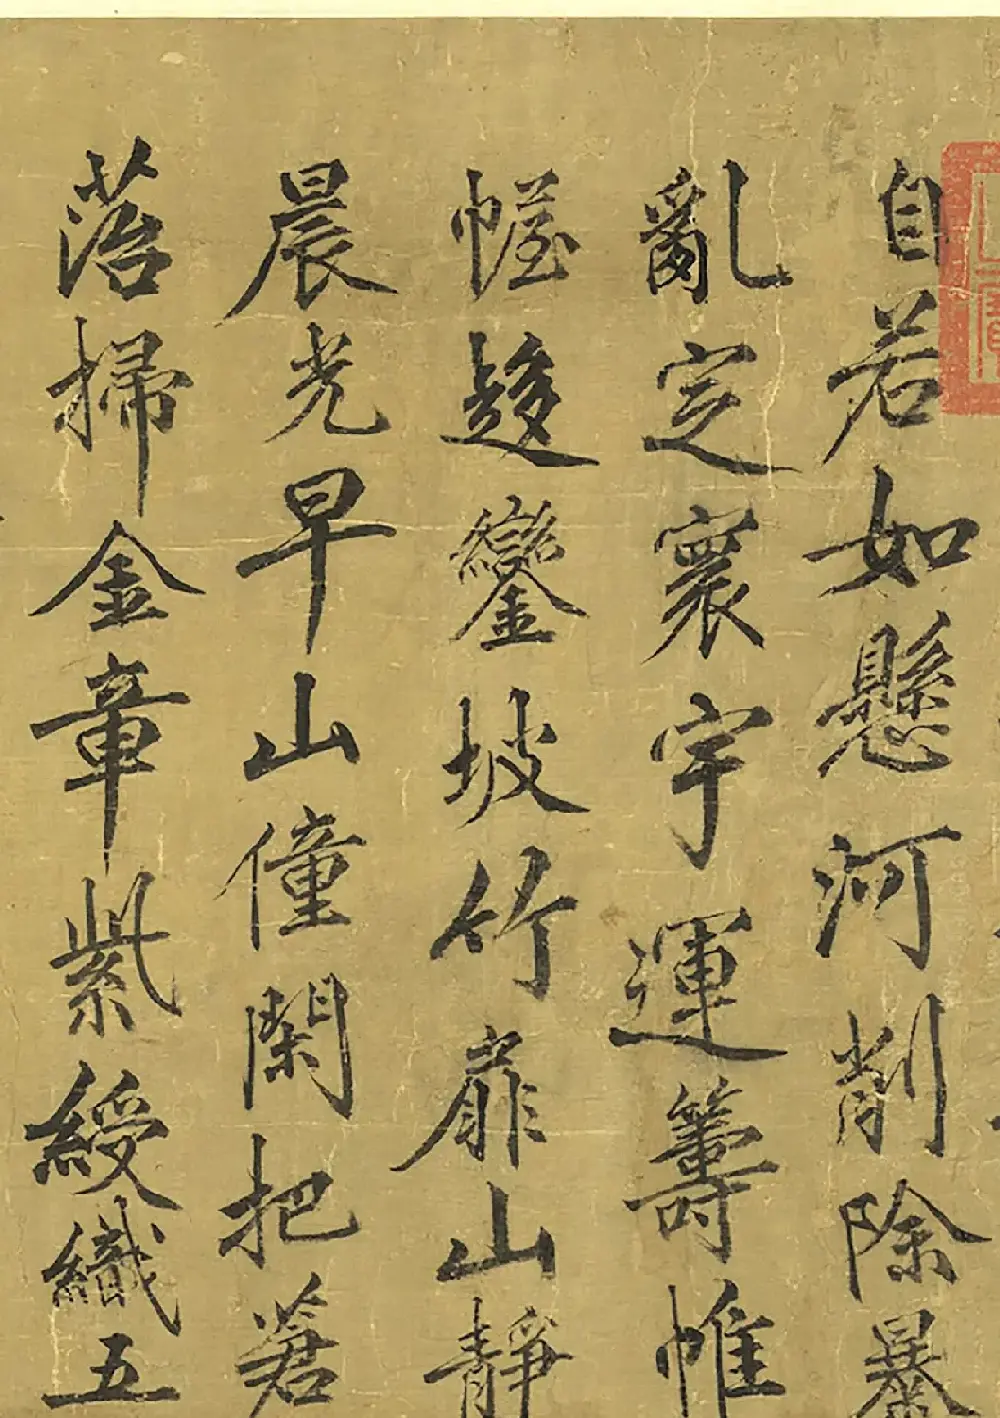 自若如懸河削除暴
亂定寰宇運籌帷
幄趍鑾坡竹扉山靜
晨光早山僮閑把蒼
菭掃金章紫綬織五